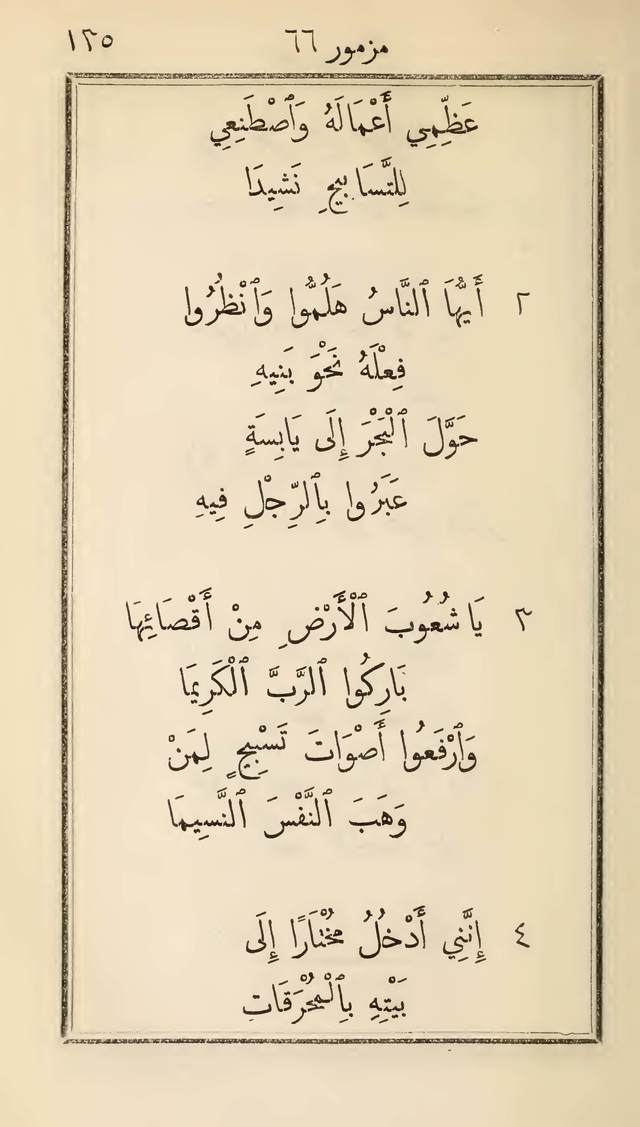 مزمور ٦٦ ١٣٥
عَظِّمِي أَعْمَالَهُ وَٱصْطَنِعِي
لِلتَّسَابِيحِ نَشِيدَا
٢ أَيُّهَا ٱلنَّاسُ هَلُمُّوا وَٱنْظُرُوا
فِعْلَهُ نَحْوَ بَنِيهِ
حَوَّلَ ٱلْبَحْرَ إِلَى يَابِسَةٍ
عَبَرُوا بِٱلرِّجْلِ فِيهِ
٣ يَا شُعُوبَ ٱلْأَرْضِ مِنْ أَقْصَائِهَا
بَارِكُوا ٱلرَّبَّ ٱلْكَرِيمَا
وَٱرْفَعُوا أَصْوَاتَ تَسْبِيحٍ لِمَنْ
وَهَبَ ٱلنَّفْسَ ٱلنَّسِيمَا
٤ إِنَّنِي أَدْخُلُ مُخْتَارًا إِلَى
بَيْتِهِ بِٱلْمُحْرَقَاتِ